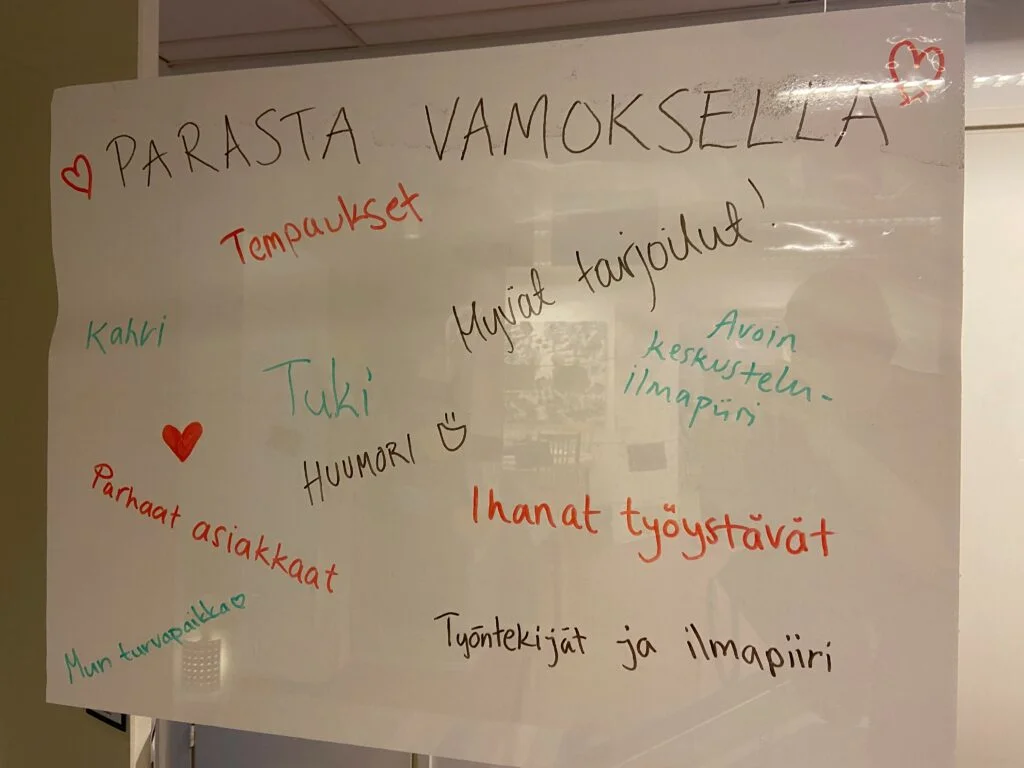 PARASTA VAMOKSELLA
Tempaukset
Myvät tarjoilut!
Kahvi
Tuki
Avoin
keskustelu-
ilmapiiri
HUUMORI
Parhaat asiakkaat
Ihanat työystävät
Mun turvapaikka
Työntekijät ja ilmapiiri